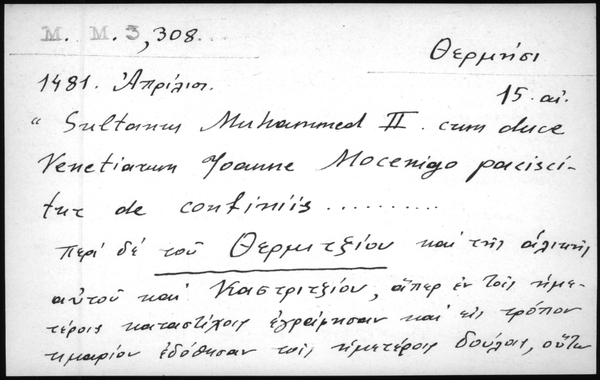 M. M. 3, 308
Θερμήσι
1481. Ἀπρίλιος.
15. αἰ.
"Sultanus Muhammed II. cum duce
Venetiarum Joanne Mocenigo pacisci-
tur de confiniis ..........
περὶ δὲ τοῦ Θερμιτζίου καὶ τῆς ἁλικῆς
αὐτοῦ καὶ Καστριτζίου, ἅπερ ἐν τοῖς ἡμε-
τέροις καταστίχοις ἐγράφησαν καὶ εἰς τρόπον
τιμαρίου ἐδόθησαν τοῖς ἡμετέροις δούλοις, οὕτω